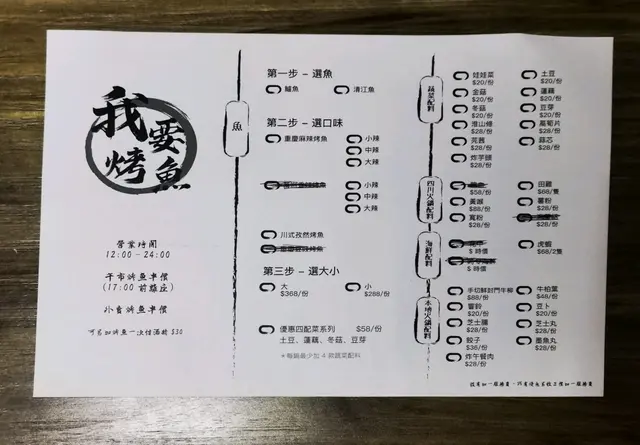 我要烤魚
營業時間
12:00 - 24:00
(17:00 前離座)
魚
第一步 – 選魚
鱸魚 清江魚
第二步 – 選口味
重慶麻辣烤魚 小辣
中辣
大辣
小辣
中辣
大辣
川式孜然烤魚
第三步 – 選大小
大 小
$368/份 $288/份
優惠四配菜系列 $58/份
土豆、蓮藕、冬菇、豆芽
*每鍋最少加 4 款蔬菜配料
蔬菜配料
娃娃菜 土豆
$20/份 $20/份
金菇 蓮藕
$20/份 $20/份
冬菇 豆芽
$20/份 $20/份
淮山條 萵筍片
$28/份 $28/份
芫茜 蒜芯
$28/份 $28/份
炸芋頭
$28/份
四川火鍋配料
田雞
$58/份 $68/隻
黃喉 薯粉
$88/份 $28/份
寬粉
$28/份 $28/份
海鮮配料
虎蝦
$ 時價 $68/2隻
$ 時價
本地火鍋配料
手切鮮封門牛柳 牛柏葉
$88/份 $48/份
響鈴 豆卜
$20/份 $20/份
芝士腸 芝士丸
$28/份 $28/份
餃子 墨魚丸
$36/份 $28/份
炸午餐肉
$28/份